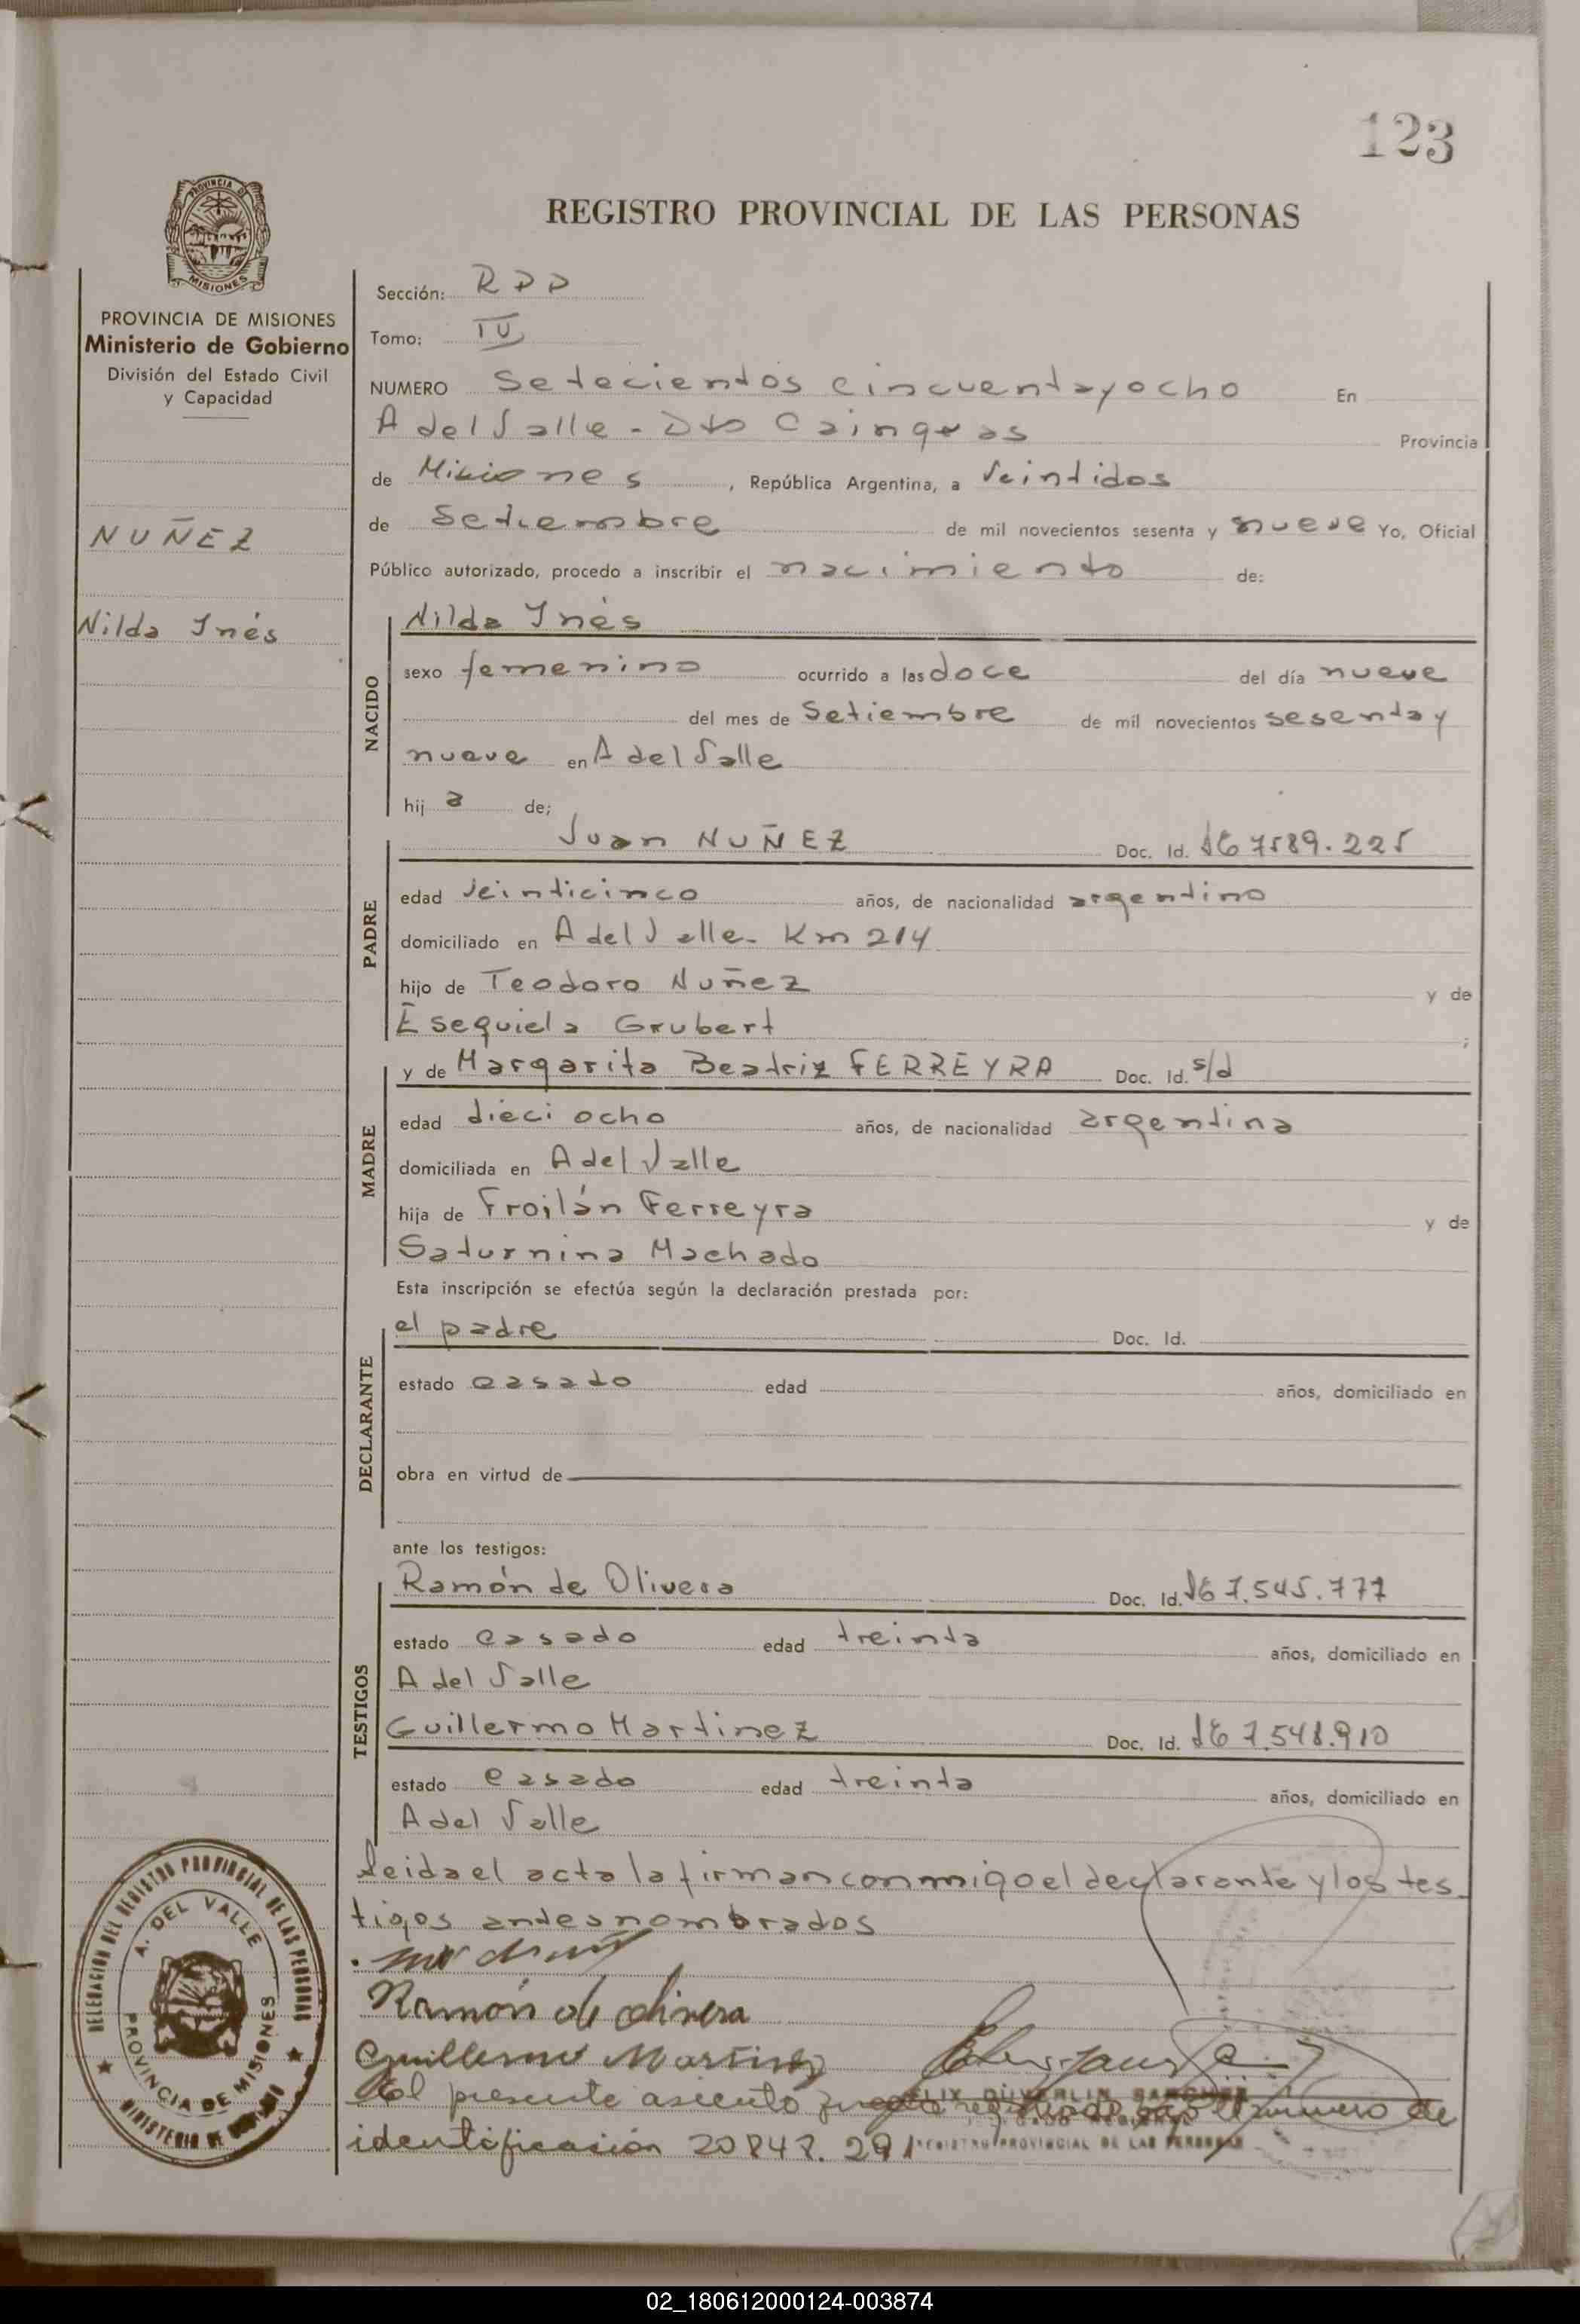 123
PROVINCIA DE
MISIONES
REGISTRO PROVINCIAL DE LAS PERSONAS
PROVINCIA DE MISIONES
Ministerio de Gobierno
División del Estado Civil
y Capacidad
NUÑEZ
Nilda Inés
Sección: RDD
Tomo: IV
NUMERO Setecientos cincuentayocho En
A del Valle - Dto Cainguas Provincia
de Misiones, República Argentina, a Veintidos
de Setiembre de mil novecientos sesenta y nueve Yo, Oficial
Público autorizado, procedo a inscribir el nacimiento de:
NACIDO
Nilda Inés
sexo femenino ocurrido a las doce del día nueve
del mes de Setiembre de mil novecientos sesenta y
nueve en A del Valle
hij a de;
PADRE
Juan NUÑEZ Doc. Id. 7589.225
edad veinticinco años, de nacionalidad argentino
domiciliado en A del Valle- Km 214
hijo de Teodoro Nuñez y de
Esequiela Grubert ;
MADRE
y de Margarita Beatriz FERREYRA Doc. Id. s/d
edad dieciocho años, de nacionalidad argentina
domiciliada en A del Valle
hija de Froilán Ferreyra y de
Saturnina Machado
Esta inscripción se efectúa según la declaración prestada por:
DECLARANTE
el padre Doc. Id.
estado casado edad años, domiciliado en
obra en virtud de
ante los testigos:
TESTIGOS
Ramón de Olivera Doc. Id. 7.545.777
estado casado edad treinta años, domiciliado en
A del Valle
Guillermo Martinez Doc. Id. 7.548.910
estado casado edad treinta años, domiciliado en
A del Valle
Leida el acta la firman conmigo el declarante y los tes
tigos antes nombrados
Ramón de olivera
Guillermo Martinez
El presente asiento registrado bajo el número de
identificasión 20848.291
REGISTRO PROVINCIAL DE LAS PERSONAS
DELEGACION DEL REGISTRO PROVINCIAL DE LAS PERSONAS
A. DEL VALLE
PROVINCIA DE MISIONES
MINISTERIO DE GOBIERNO
02_180612000124-003874